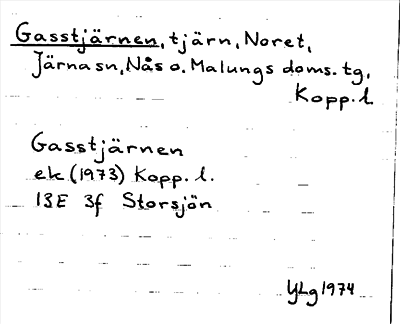 Gasstjärnen, tjärn, Noret,
Järna sn, Nås o. Malungs doms. tg,
Kopp. l.
Gasstjärnen
ek (1973) Kopp. l.
13E 3f Storsjön
YLg 1974